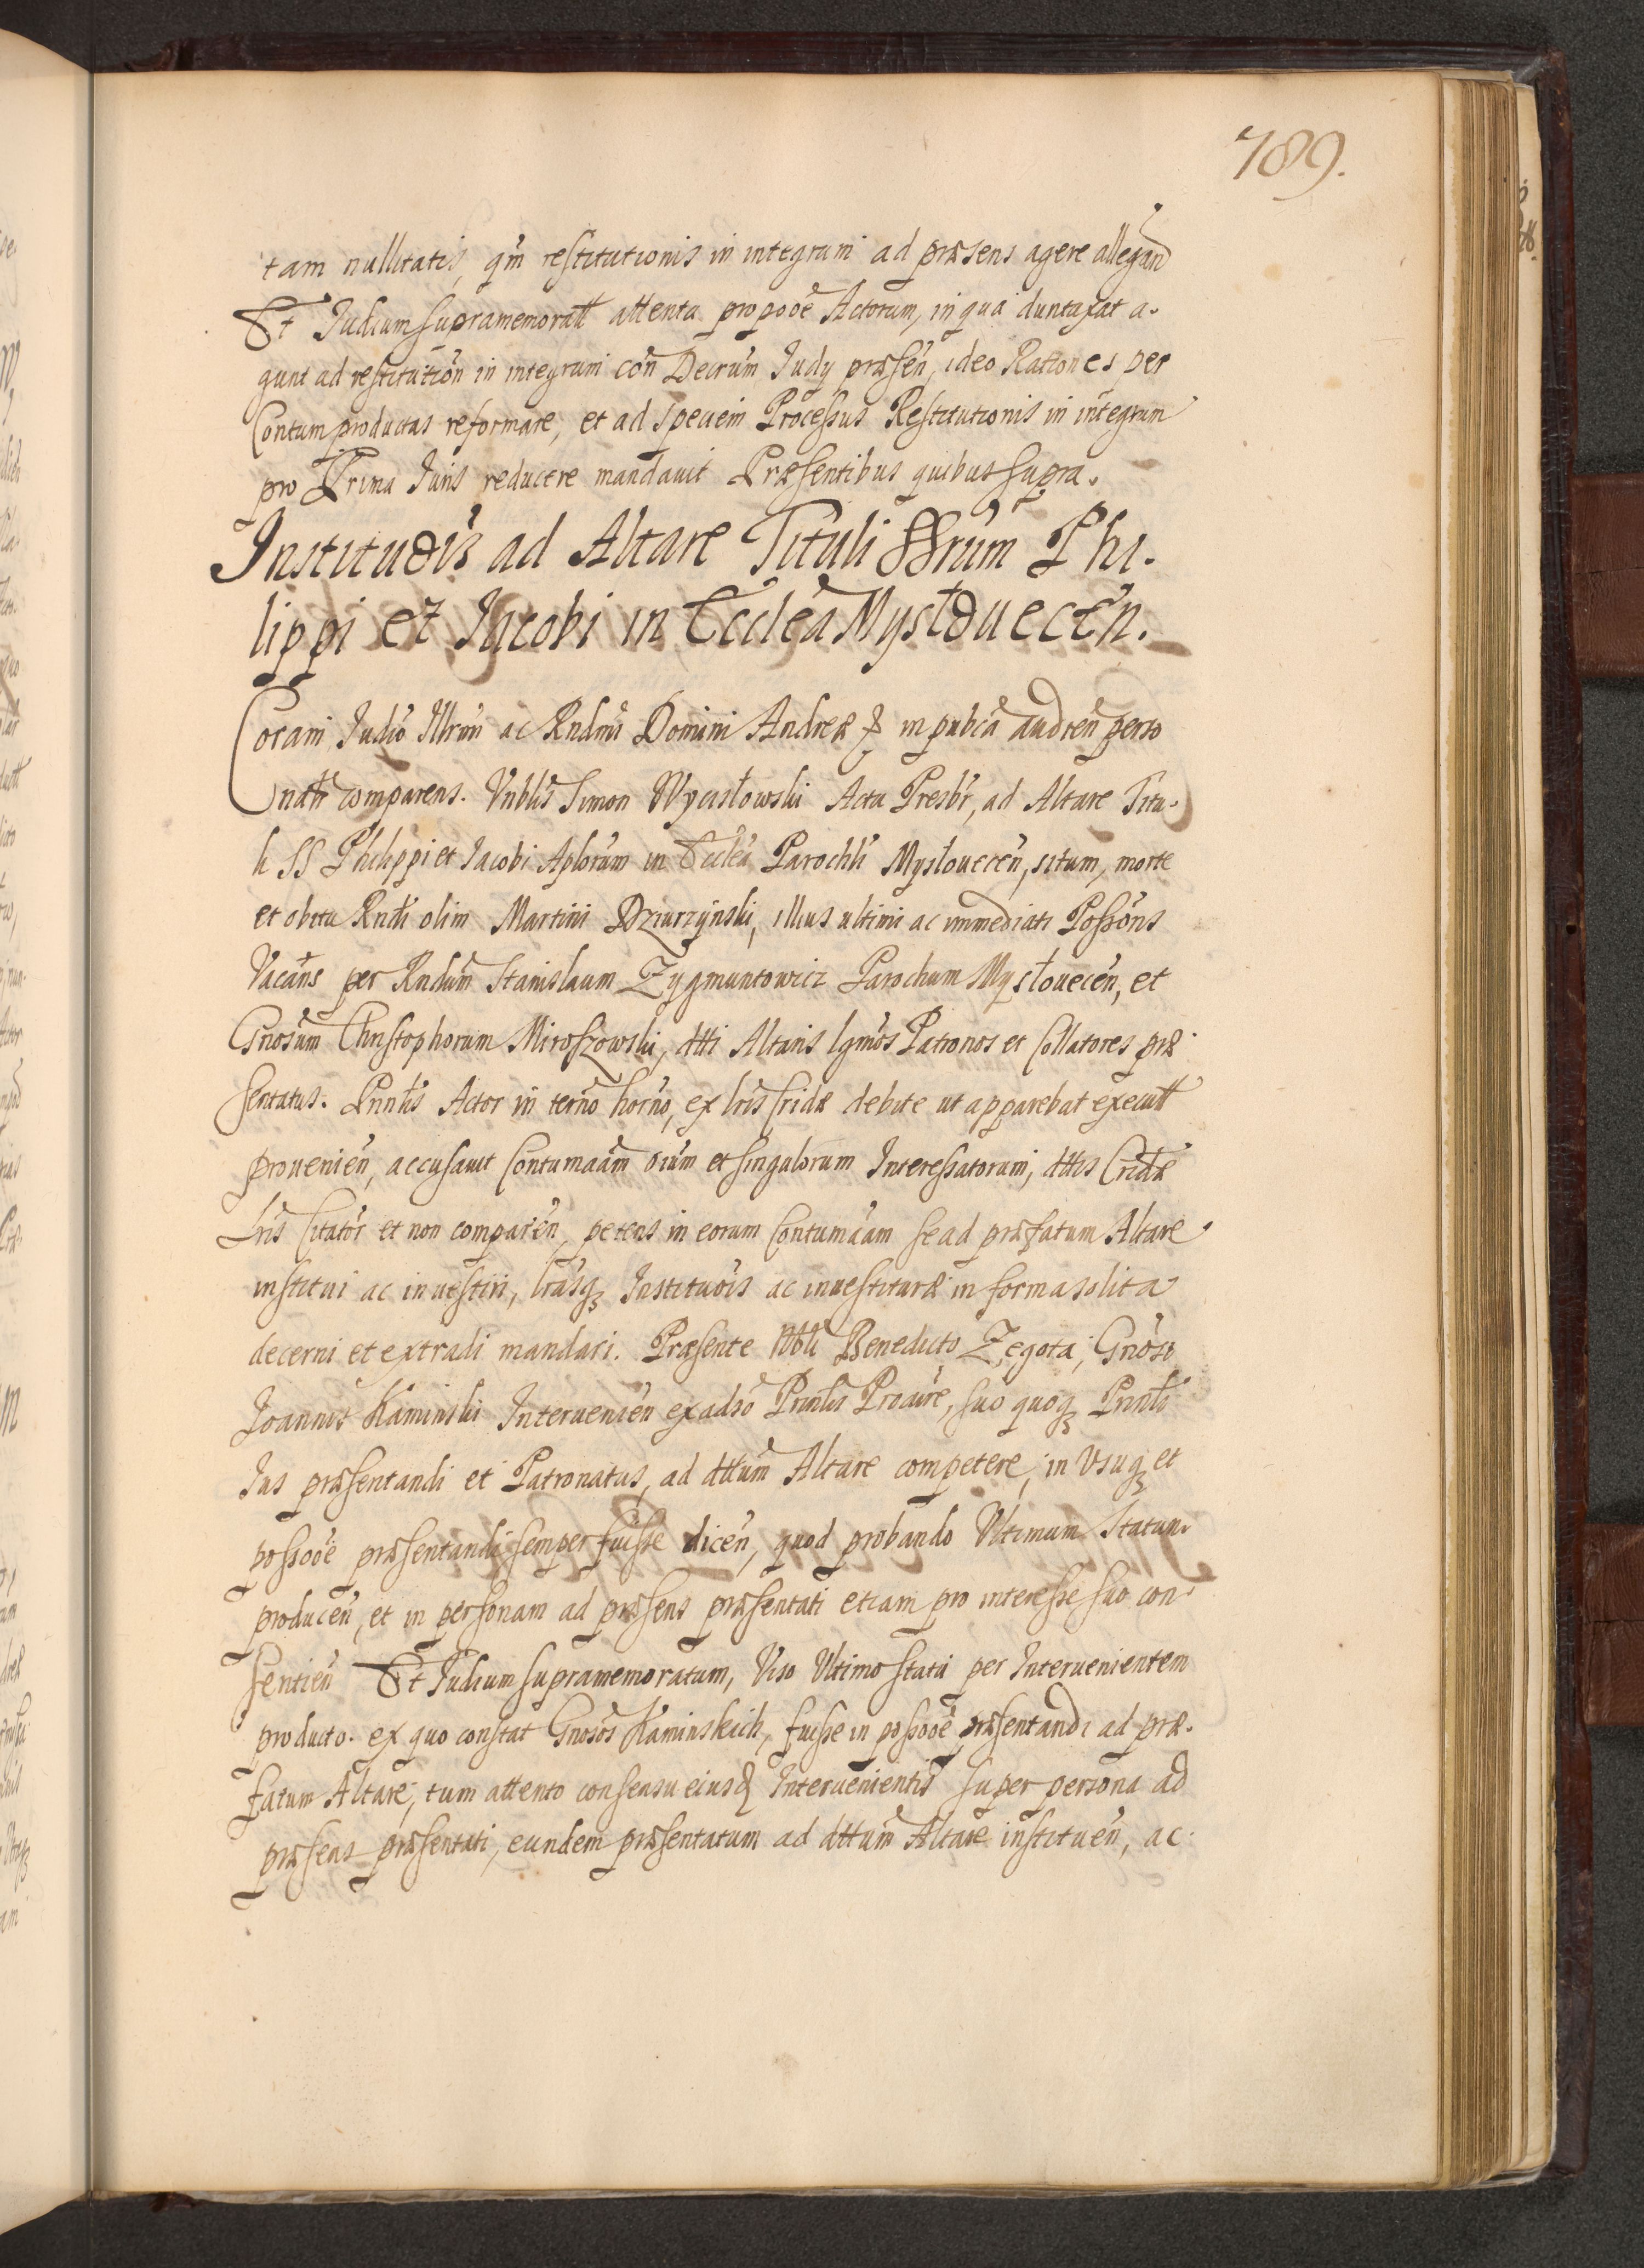 789.
tam nullitatis, qm̃ restitutionis in integrum ad præsens agere allegan̄
Et Judium supramemoratt attenta propooẽ Actorum, in qua duntaxat a-
gunt ad restitution̄ in integrum con̄ Decrum̃ Judy præsen̄, ideo Rationes per
Contum productas reformare, et ad speciem Processus Restitutionis in integrum
pro Prima Juris reducere mandauit Præsentibus quibus supra.
Institutõis ad Altare Tituli SSrũm Phi-
lippi et Jacobi in Ecclẽa Mysłouecen̄.
Coram Judiõ Illrm̃i ac Rndmi Domini Andreæ in publcã audien̄ perso
naltr comparens. Vnblis Simon Wycisłowski Acta Presbr̃, ad Altare Titu-
li SS Philippi et Jacobi Aplorũm in Ecclẽa Parochli Mysłouecen̄, situm, morte
et obitu Rndi olim Martini Dziurzynski, illius ultimi ac immediati Possõris
Vacan̄s per Rndum̃ Stanislaum Zygmuntowicz Parochum Mysłouecen̄, et
Gnosum̃ Christophorum Miroszowski, dtti Altaris lgmõs Patronos et Collatores præ
sentatus. Pnñtis Actor in ternõ hornõ, ex lris Cridæ debite ut apparebat executt
prouenien̄, accusauit Contumaam̃ oium̃ et singulorum Interessatorum, dttis Cridæ
Lris Citator̃ et non comparen̄, petens in eorum Contumaam̃ se ad præfatum Altare
institui ac inuestiri, lrasq̃ Institutõis ac inuestituræ in forma solita
decerni et extradi mandari. Præsente Nobli Benedicto Zegota, Gnosi
Joannis Kaminski Interuenien̄ ex adsõ Prinlis Procure, suo quoq̃ Prinli
Jus præsentandi et Patronatus, ad dttum̃ Altare competere, in Vsuq̃ et
possooẽ præsentandi semper fuisse dicen̄, quod probando Vltimum Statum
producen̄, et in personam ad præsens præsentati etiam pro interesse suo con-
sentien̄ Et Judium supramemoratum, Viso Vltimo statu per Interuenientem
producto. ex quo constat Gnosos Kaminskich, fuisse in possooẽ præsentandi ad præ-
fatum Altare, tum attento consensu eiusd Interuenientis super persona ad
præsens præsentati, eundem præsentatum ad dttum̃ Altare instituen̄, ac